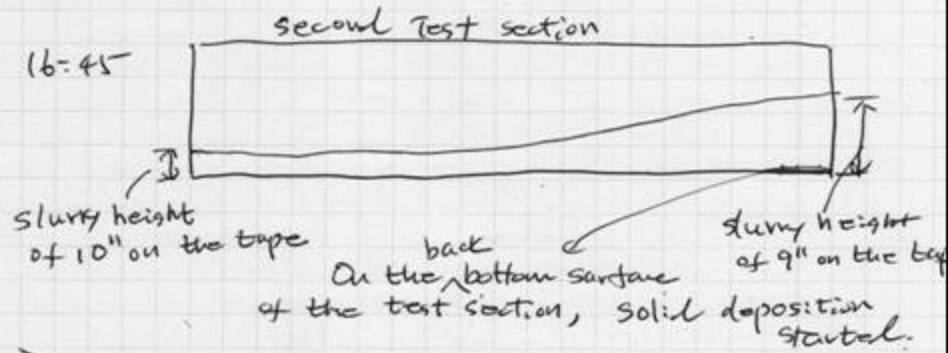 second Test section
16:45
slurry height
of 10" on the tape
slurry height
of 9" on the tap
back
On the ^ bottom surface
of the test section, solid deposition
started.